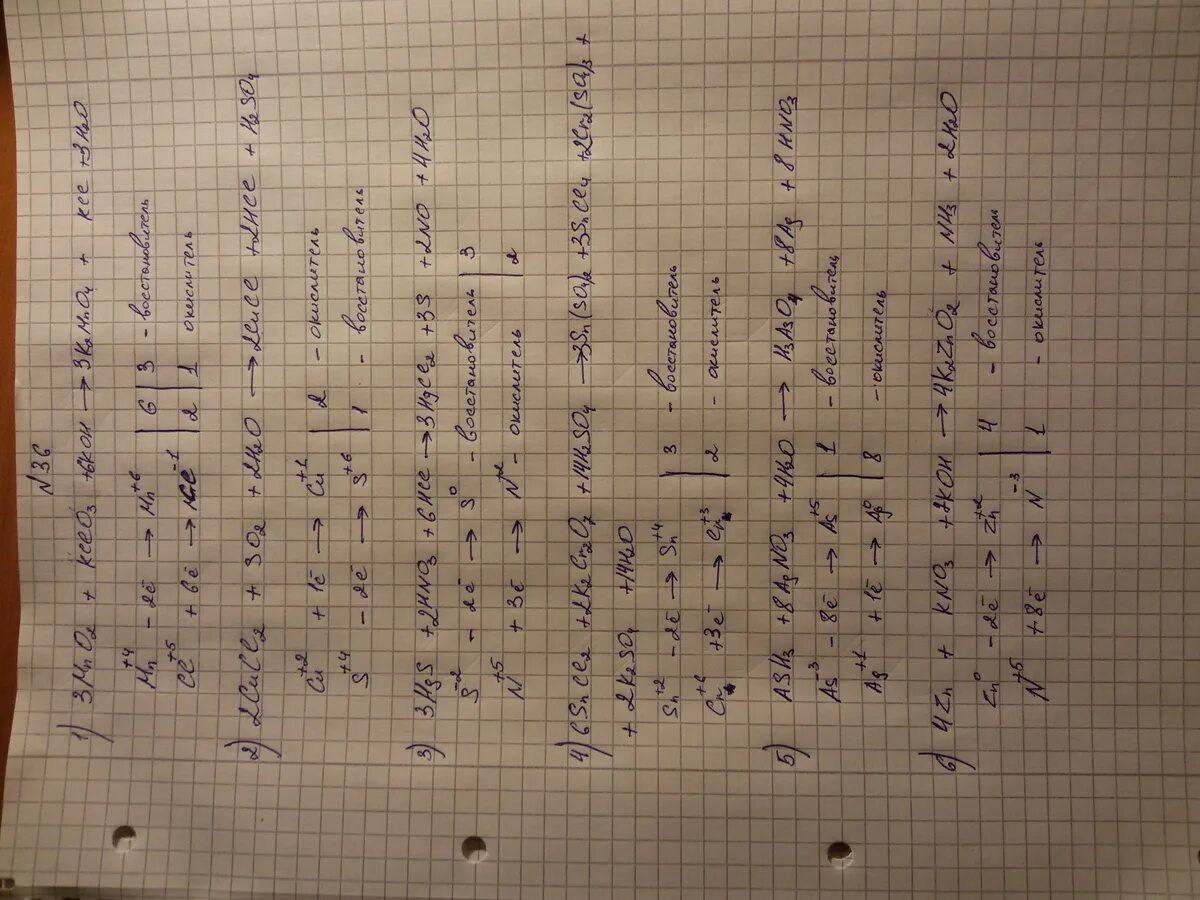 N 36
1) 3MnO₂ + KClO₃ + 6KOH → 3K₂MnO₄ + KCl + 3H₂O
Mn⁺⁴ - 2ē → Mn⁺⁶ | 6 | 3 - восстановитель
Cl⁺⁵ + 6ē → Cl⁻¹ | 2 | 1 окислитель
2) 2CuCl₂ + SO₂ + 2H₂O → 2CuCl + 2HCl + H₂SO₄
Cu⁺² + 1ē → Cu⁺¹ | 2 - окислитель
S⁺⁴ - 2ē → S⁺⁶ | 1 - восстановитель
3) 3HgS + 2HNO₃ + 6HCl → 3HgCl₂ + 3S + 2NO + 4H₂O
S⁻² - 2ē → S⁰ - восстановитель | 3
N⁺⁵ + 3ē → N⁺² - окислитель | 2
4) 6SnCl₂ + 2K₂Cr₂O₇ + 14H₂SO₄ → 3Sn(SO₄)₂ + 3SnCl₄ + 2Cr₂(SO₄)₃ +
+ 2K₂SO₄ + 14H₂O
Sn⁺² - 2ē → Sn⁺⁴ | 3 - восстановитель
Cr⁺⁶ + 3ē → Cr⁺³ | 2 - окислитель
5) AsH₃ + 8AgNO₃ + 4H₂O → H₃AsO₄ + 8Ag + 8HNO₃
As⁻³ - 8ē → As⁺⁵ | 1 - восстановитель
Ag⁺¹ + 1ē → Ag⁰ | 8 - окислитель
6) 4Zn + KNO₃ + 7KOH → 4K₂ZnO₂ + NH₃ + 2H₂O
Zn⁰ - 2ē → Zn⁺² | 4 - восстановител
N⁺⁵ + 8ē → N⁻³ | 1 - окислитель